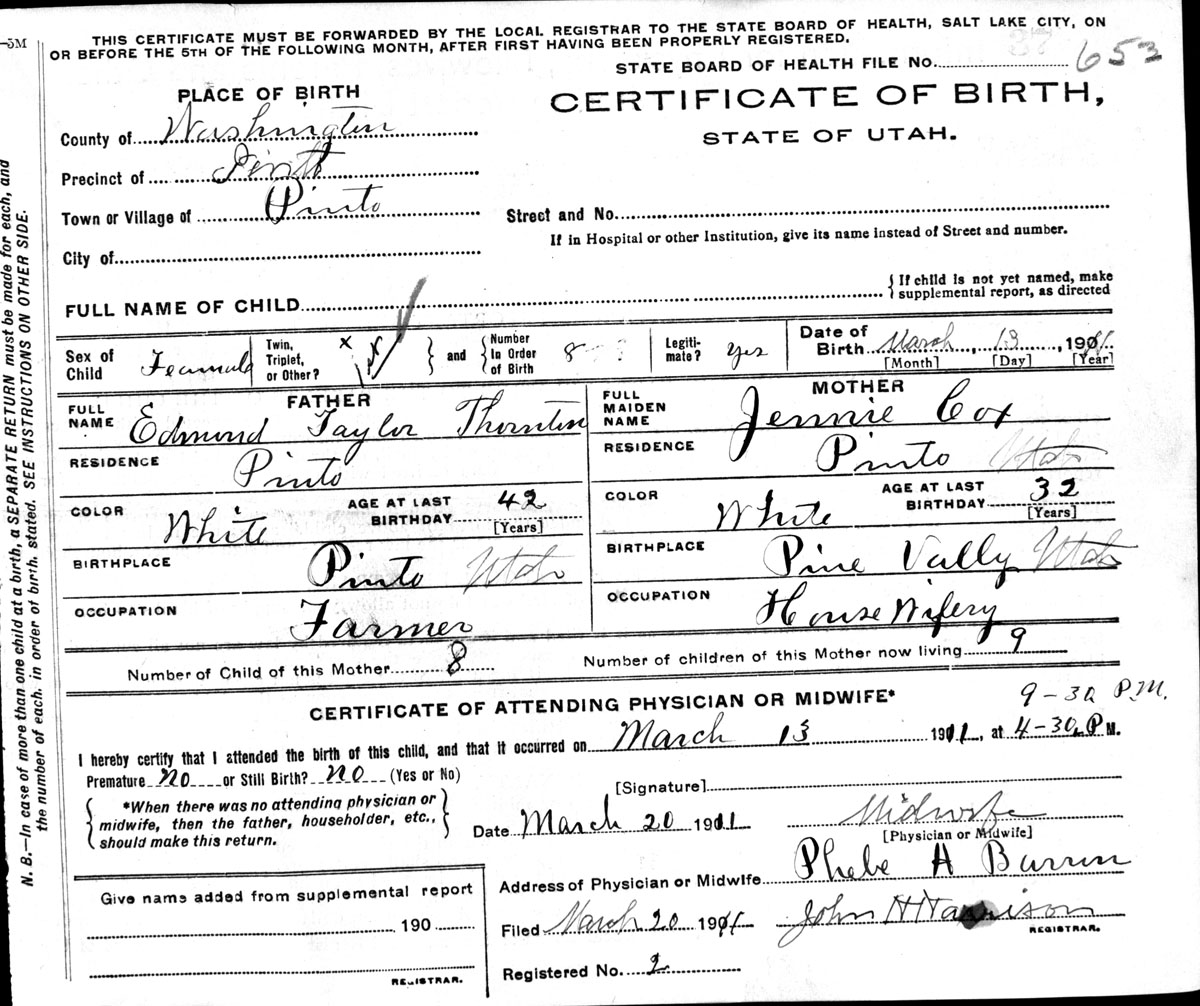 —5M
THIS CERTIFICATE MUST BE FORWARDED BY THE LOCAL REGISTRAR TO THE STATE BOARD OF HEALTH, SALT LAKE CITY, ON
OR BEFORE THE 5TH OF THE FOLLOWING MONTH, AFTER FIRST HAVING BEEN PROPERLY REGISTERED.
STATE BOARD OF HEALTH FILE No. 653
PLACE OF BIRTH
CERTIFICATE OF BIRTH,
STATE OF UTAH.
County of Washington
Precinct of Pinto
Town or Village of Pinto
Street and No.
If in Hospital or other Institution, give its name instead of Street and number.
City of
FULL NAME OF CHILD
{ If child is not yet named, make
supplemental report, as directed
Sex of Child Feamale
Twin, Triplet, or Other? x x
} and { Number In Order of Birth 8
Legiti-mate? yes
Date of Birth March, 13, 1911.
[Month] [Day] [Year]
FATHER
FULL NAME Edmund Taylor Thornton
MOTHER
FULL MAIDEN NAME Jennie Cox
RESIDENCE Pinto
RESIDENCE Pinto Utah
COLOR White
AGE AT LAST BIRTHDAY 42 [Years]
COLOR White
AGE AT LAST BIRTHDAY 32 [Years]
BIRTHPLACE Pinto Utah
BIRTHPLACE Pine Vally Utah
OCCUPATION Farmer
OCCUPATION House Wifery
Number of Child of this Mother 8
Number of children of this Mother now living 9
CERTIFICATE OF ATTENDING PHYSICIAN OR MIDWIFE*
9-30 P.M.
I hereby certify that I attended the birth of this child, and that it occurred on March 13 1911, at 4-30 P M.
Premature no or Still Birth? no (Yes or No)
[Signature]
{ *When there was no attending physician or
midwife, then the father, householder, etc.,
should make this return. }
Date March 20 1911
Midwife
[Physician or Midwife]
Address of Physician or Midwife Phebe H
Filed March 20 1911 John H Harrison
REGISTRAR.
Registered No. 2
Give name added from supplemental report
190
REGISTRAR.
N. B.—In case of more than one child at a birth, a SEPARATE RETURN must be made for each, and
the number of each, in order of birth, stated. SEE INSTRUCTIONS ON OTHER SIDE.